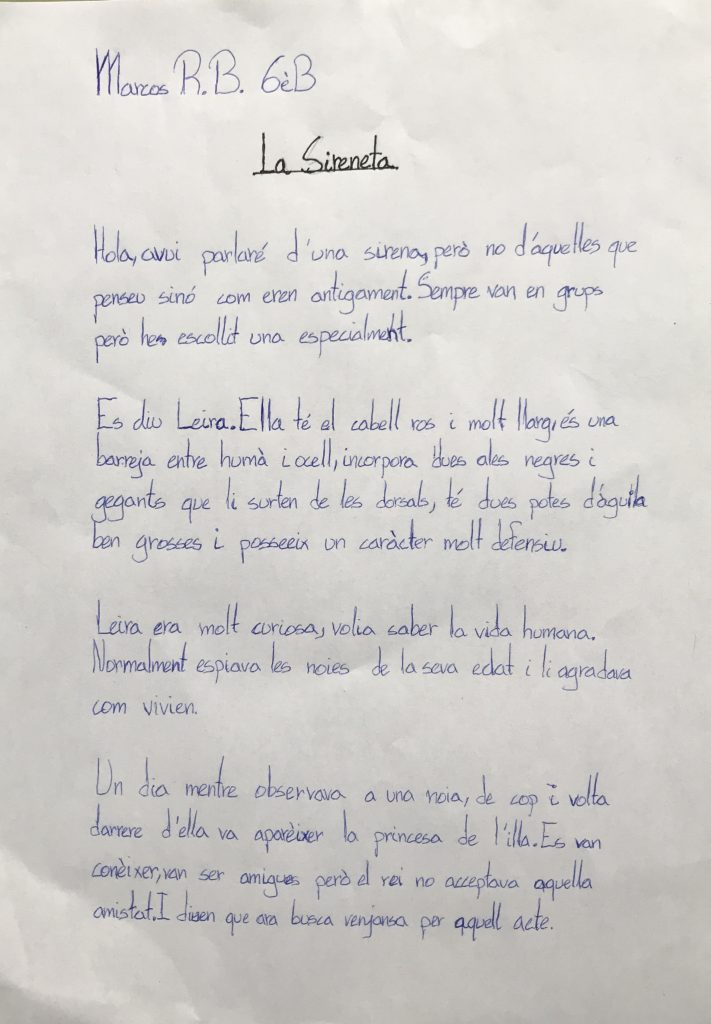 Marcos R.B. 6èB
La Sireneta
Hola, avui parlaré d'una sirena, però no d'áquelles que
penseu sinó com eren antigament. Sempre van en grups
però he escollit una especialment.
Es diu Leira. Ella té el cabell ros i molt llarg, és una
barreja entre humà i ocell, incorpora dues ales negres i
gegants que li surten de les dorsals, té dues potes d'águila
ben grosses i posseeix un caràcter molt defensiu.
Leira era molt curiosa, volia saber la vida humana.
Normalment espiava les noies de la seva edat i li agradava
com vivien.
Un dia mentre observava a una noia, de cop i volta
darrere d'ella va aparèixer la princesa de l'illa. Es van
conèixer, van ser amigues però el rei no acceptava aquella
amistat. I diuen que ara busca venjansa per aquell acte.